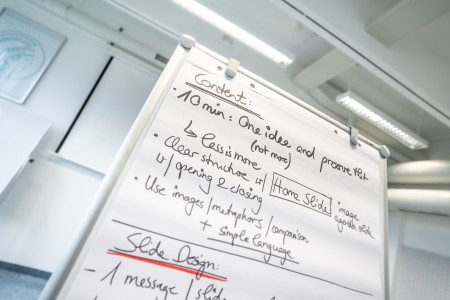 Content:
• 10 min: One idea and preserve that
↳ less is more (not more)
• Clear structure w/ Home Slide
w/ opening & closing
image agenda slide
• Use images/metaphors/comparison
+ simple language
Slide Design:
- 1 message / slide